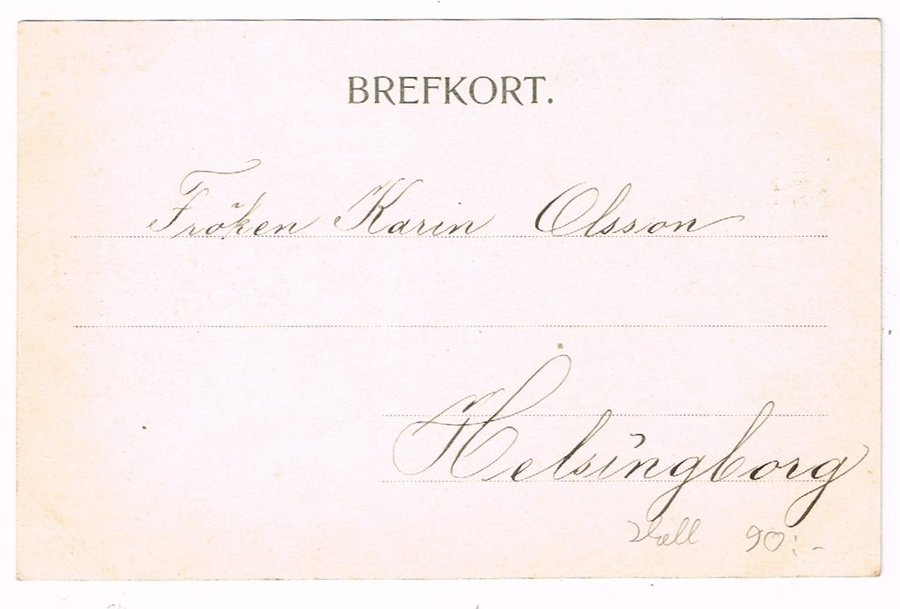 BREFKORT.
Fröken Karin Olsson
Helsingborg
90:-